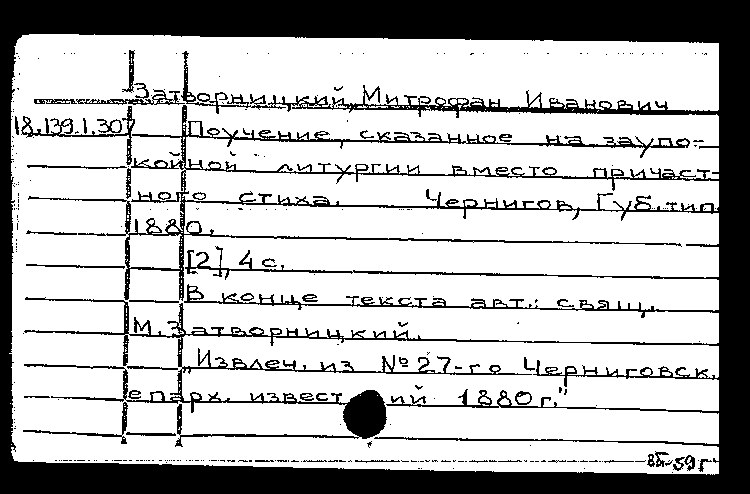 Затворницкий, Митрофан Иванович
18.139.1.307 Поучение, сказанное на заупо=
койной литургии вместо причаст-
ного стиха. Чернигов, Губ.тип.
1880.
[2], 4 с.
В конце текста авт.: свящ.
М. Затворницкий.
„Извлеч. из №27-го Черниговск.
епарх. извест ий 1880 г."
ВБ-59г